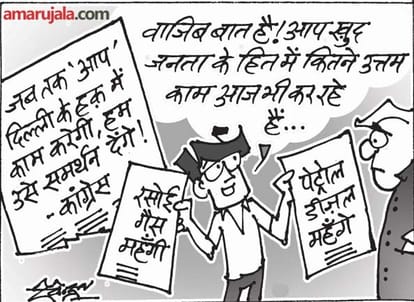 amarujala.com
जब तक 'आप'
दिल्ली के हक में
काम करेगी, हम
उसे समर्थन देंगे!
-कांग्रेस
वाजिब बात है! आप खुद
जनता के हित में कितने उत्तम
काम आज भी कर रहे
हैं...
रसोई
गैस
महंगी
पेट्रोल
डीजल
महँगे